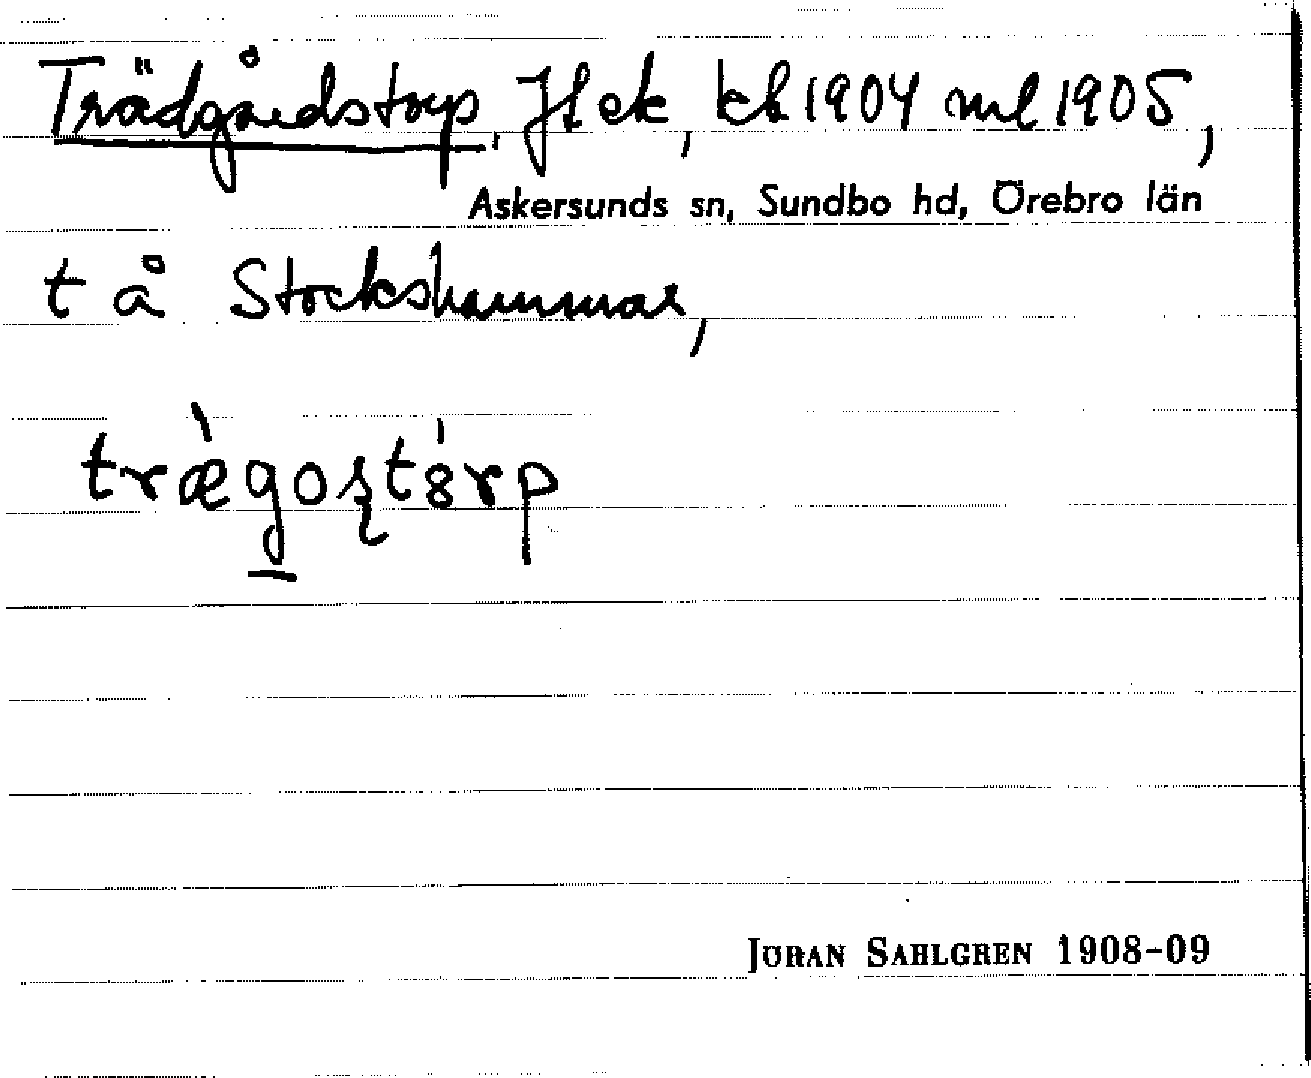 Trädgårdstorp, Jlek, kb 1904 ml 1905,
Askersunds sn, Sundbo hd, Örebro län
t å Stockshammar,
træ̀gosʈȣ́rp
JÖRAN SAHLGREN 1908-09